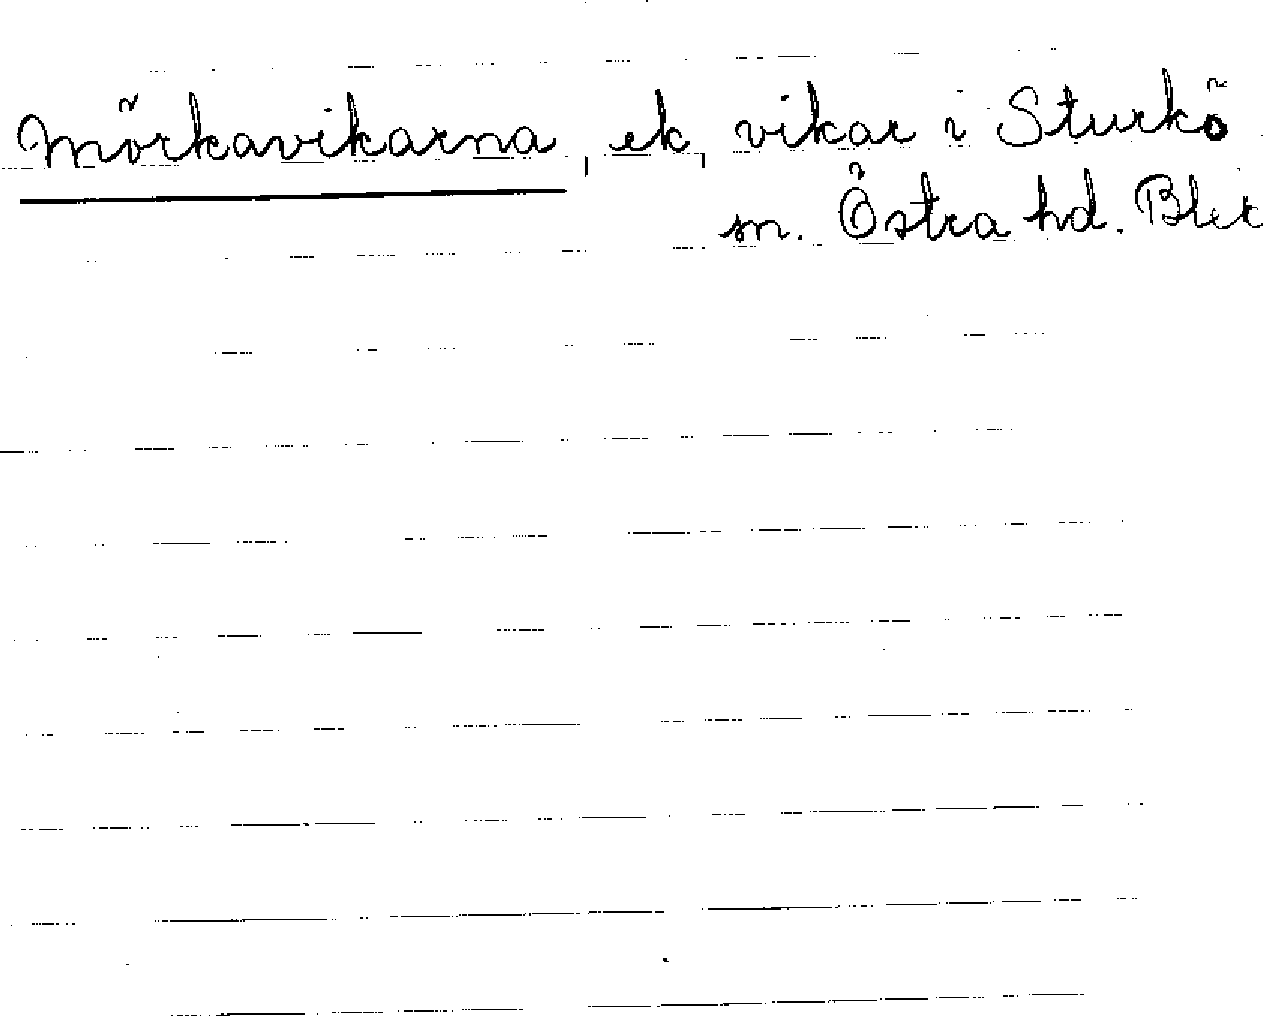 Mörkavikarna, ek, vikar i Sturkö
sn. Östra hd. Blek